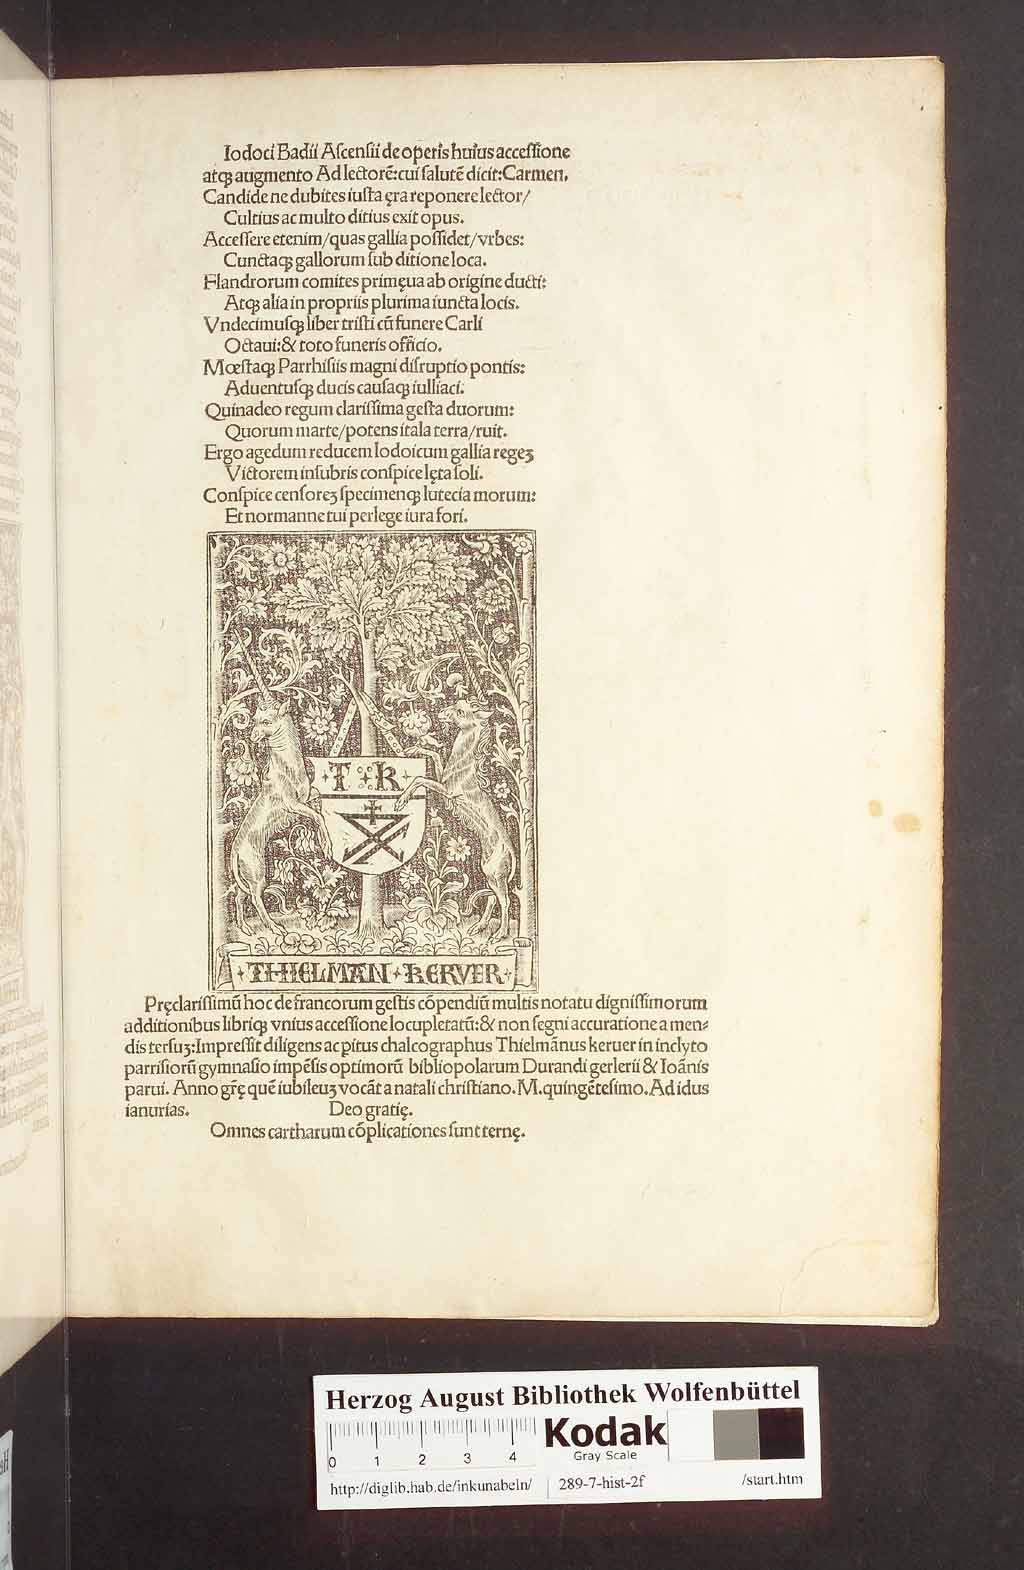 Iodoci Badii Ascensii de operis huius accessione
atqꝫ augmento Ad lectorē: cui salutē dicit: Carmen.
Candide ne dubites iusta ęra reponere lector/
Cultius ac multo ditius exit opus.
Accessere etenim/quas gallia possidet/vrbes:
Cunctaqꝫ gallorum sub ditione loca.
Flandrorum comites primęua ab origine ducti:
Atqꝫ alia in propriis plurima iuncta locis.
Vndecimusqꝫ liber tristi cū funere Carli
Octaui: & toto funeris officio.
Mœstaqꝫ Parrhisiis magni disruptio pontis:
Aduentusqꝫ ducis causaqꝫ iulliaci.
Quinadeo regum clarissima gesta duorum:
Quorum marte/potens itala terra/ruit.
Ergo agedum reducem lodoicum gallia regeꝫ
Victorem insubris conspice lęta soli.
Conspice censoreꝫ specimenqꝫ lutecia morum:
Et normanne tui perlege iura fori.
T R
THIELMAN KERVER
Pręclarissimū hoc de francorum gestis cōpendiū multis notatu dignissimorum
additionibus libriqꝫ vnius accessione locupletatū: & non segni accuratione a men⸗
dis tersuꝫ: Impressit diligens ac pitus chalcographus Thielmānus keruer in inclyto
parrisiorū gymnasio impēsis optimorū bibliopolarum Durandi gerlerii & Ioānis
parui. Anno gr̄ę quē iubileuꝫ vocāt a natali christiano. M. quingētesimo. Ad idus
ianurias. Deo gratię.
Omnes cartharum cōplicationes sunt ternę.
Herzog August Bibliothek Wolfenbüttel
0 1 2 3 4
Kodak
Gray Scale
http://diglib.hab.de/inkunabeln/ 289-7-hist-2f /start.htm